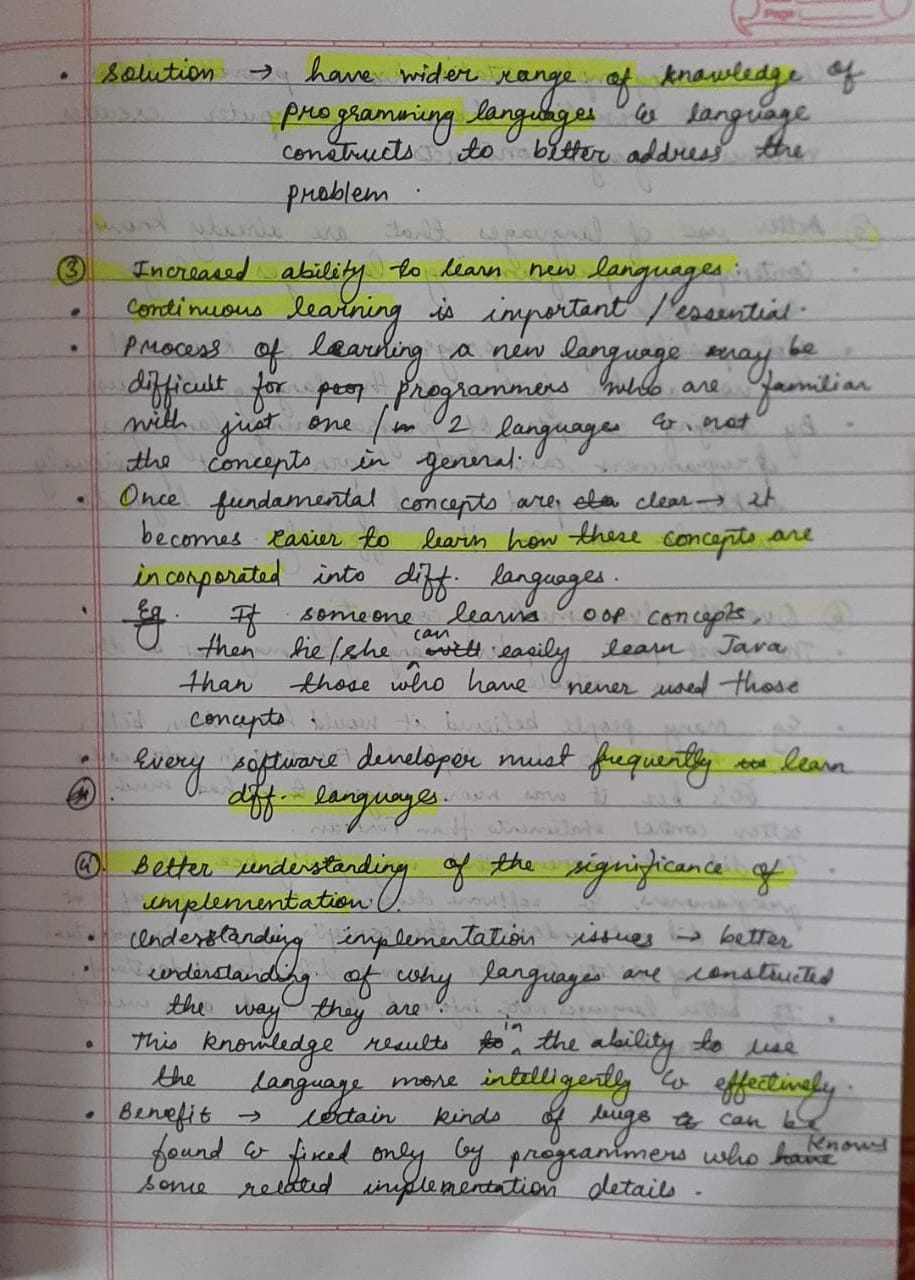 • Solution → have wider range of knowledge of
programming languages & language
constructs to better address the
problem.
③ Increased ability to learn new languages:
• Continuous learning is important / essential.
• Process of learning a new language may be
difficult for programmers who are familiar
with just one / 2 languages & not
the concepts in general.
• Once fundamental concepts are clear → it
becomes easier to learn how these concepts are
incorporated into diff. languages.
• Eg. If someone learns OOP concepts,
then he/she can easily learn Java
than those who have never used those
concepts.
• Every software developer must frequently learn
diff. languages.
④. Better understanding of the significance of
implementation.
• Understanding implementation issues → better
• understanding of why languages are constructed
the way they are.
• This knowledge results in the ability to use
the language more intelligently & effectively.
• Benefit → certain kinds of bugs can be
found & fixed only by programmers who knows
some related implementation details.